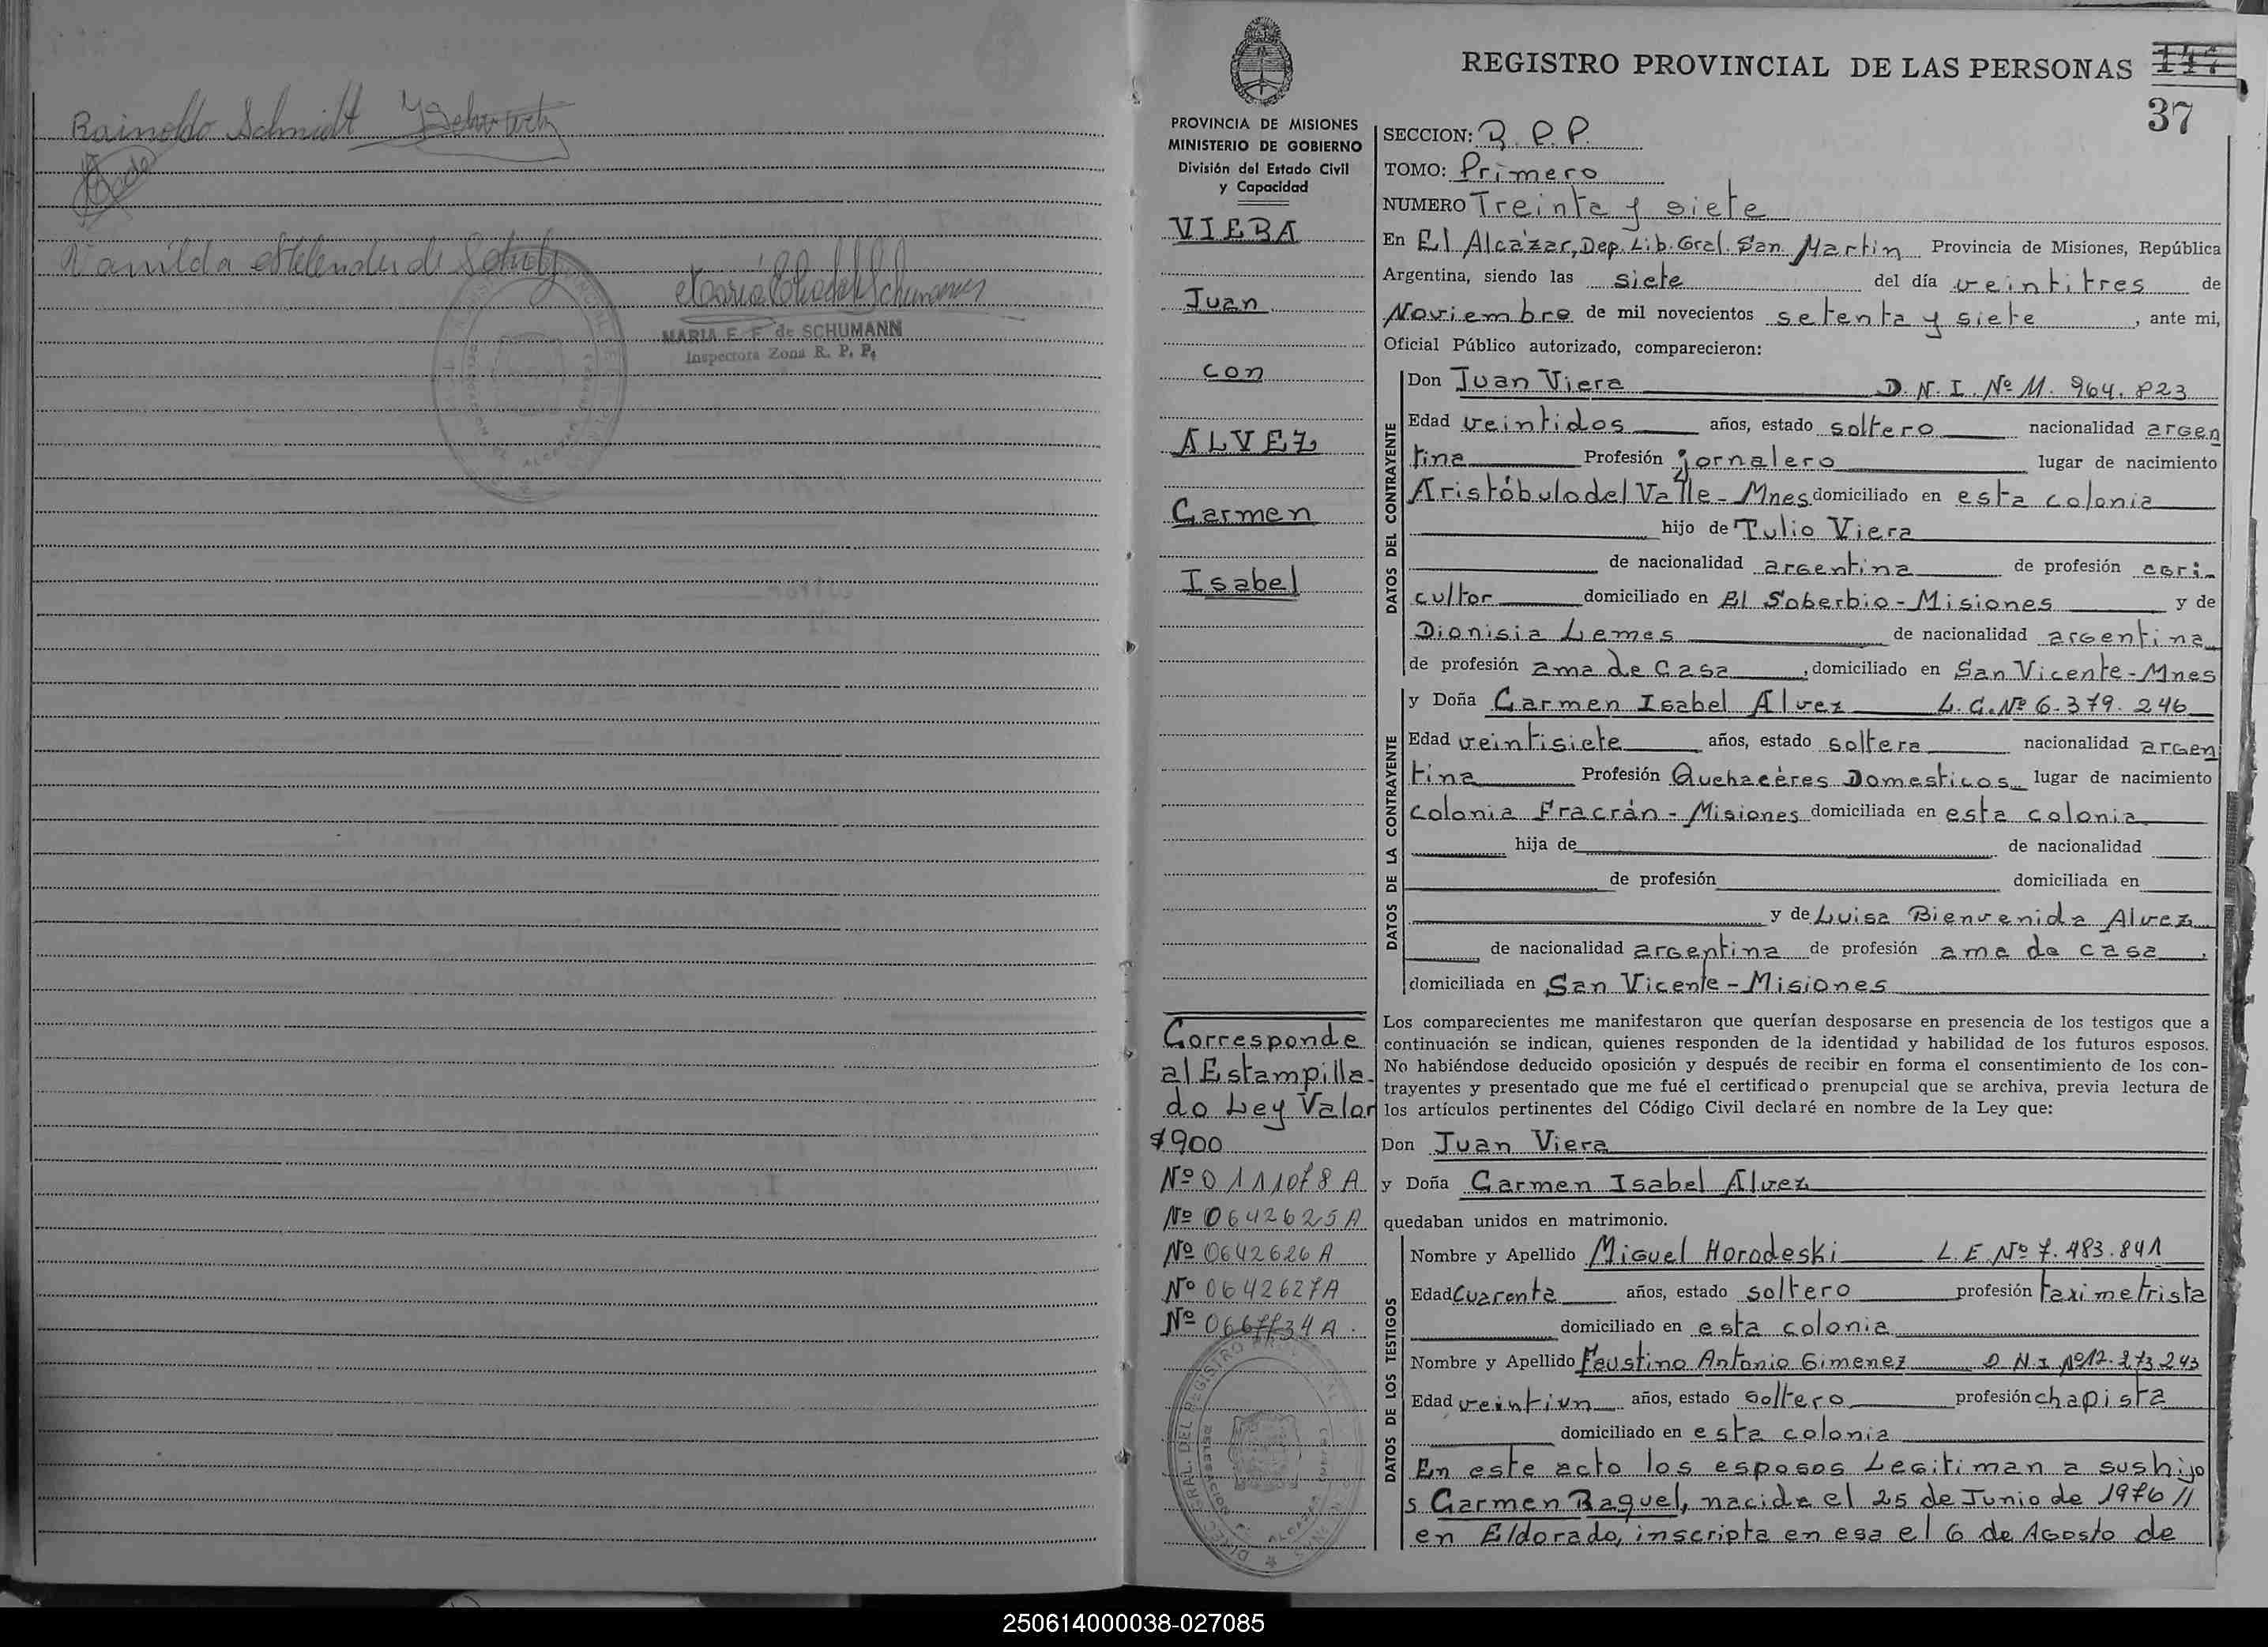 Rainoldo Schmidt
Vanilda
MARIA E. F. de SCHUMANN
Inspectora Zona R. P. P.
REGISTRO PROVINCIAL DE LAS PERSONAS
37
PROVINCIA DE MISIONES
MINISTERIO DE GOBIERNO
División del Estado Civil
y Capacidad
VIERA
Juan
con
ALVEZ
Carmen
Isabel
Corresponde
al Estampilla-
do Ley Valor
$900
Nº 0111078 A
Nº 0642625 A
Nº 0642626 A
Nº 0642627A
Nº
SECCION: R. P. P.
TOMO: Primero
NUMERO Treinta y siete
En El Alcázar, Dep. Lib. Gral. San Martin Provincia de Misiones, República
Argentina, siendo las siete del día veintitres de
Noviembre de mil novecientos setenta y siete, ante mi,
Oficial Público autorizado, comparecieron:
DATOS DEL CONTRAYENTE
Don Juan Viera D. N. I. Nº 11. 964. 823
Edad veintidos años, estado soltero nacionalidad argen
tina Profesión jornalero lugar de nacimiento
Aristóbulo del Valle - Mnes domiciliado en esta colonia
hijo de Tulio Viera
de nacionalidad argentina de profesión agri-
cultor domiciliado en El Soberbio - Misiones y de
Dionisia Lemes de nacionalidad argentina
de profesión ama de casa, domiciliado en San Vicente - Mnes
DATOS DE LA CONTRAYENTE
y Doña Carmen Isabel Alvez L. C. Nº 6. 379. 246
Edad veintisiete años, estado soltera nacionalidad argen
tina Profesión Quehacères Domesticos lugar de nacimiento
colonia Fracrán - Misiones domiciliada en esta colonia
hija de de nacionalidad
de profesión domiciliada en
y de Luisa Bienvenida Alvez
de nacionalidad argentina de profesión ama de casa,
domiciliada en San Vicente - Misiones
Los comparecientes me manifestaron que querían desposarse en presencia de los testigos que a
continuación se indican, quienes responden de la identidad y habilidad de los futuros esposos.
No habiéndose deducido oposición y después de recibir en forma el consentimiento de los con-
trayentes y presentado que me fué el certificado prenupcial que se archiva, previa lectura de
los artículos pertinentes del Código Civil declaré en nombre de la Ley que:
Don Juan Viera
y Doña Carmen Isabel Alvez
quedaban unidos en matrimonio.
DATOS DE LOS TESTIGOS
Nombre y Apellido Miguel Horodeski L. E. Nº 7. 483. 841
Edad Cuarenta años, estado soltero profesión taximetrista
domiciliado en esta colonia
Nombre y Apellido Faustino Antonio Gimenez D. N. I. Nº 12. 273. 243
Edad veintiun años, estado soltero profesión chapista
domiciliado en esta colonia
En este acto los esposos Legitiman a sus hijo
s Carmen Raquel, nacida el 25 de Junio de 1976 //
en Eldorado, inscripta en esa el 6 de Agosto de
250614000038-027085